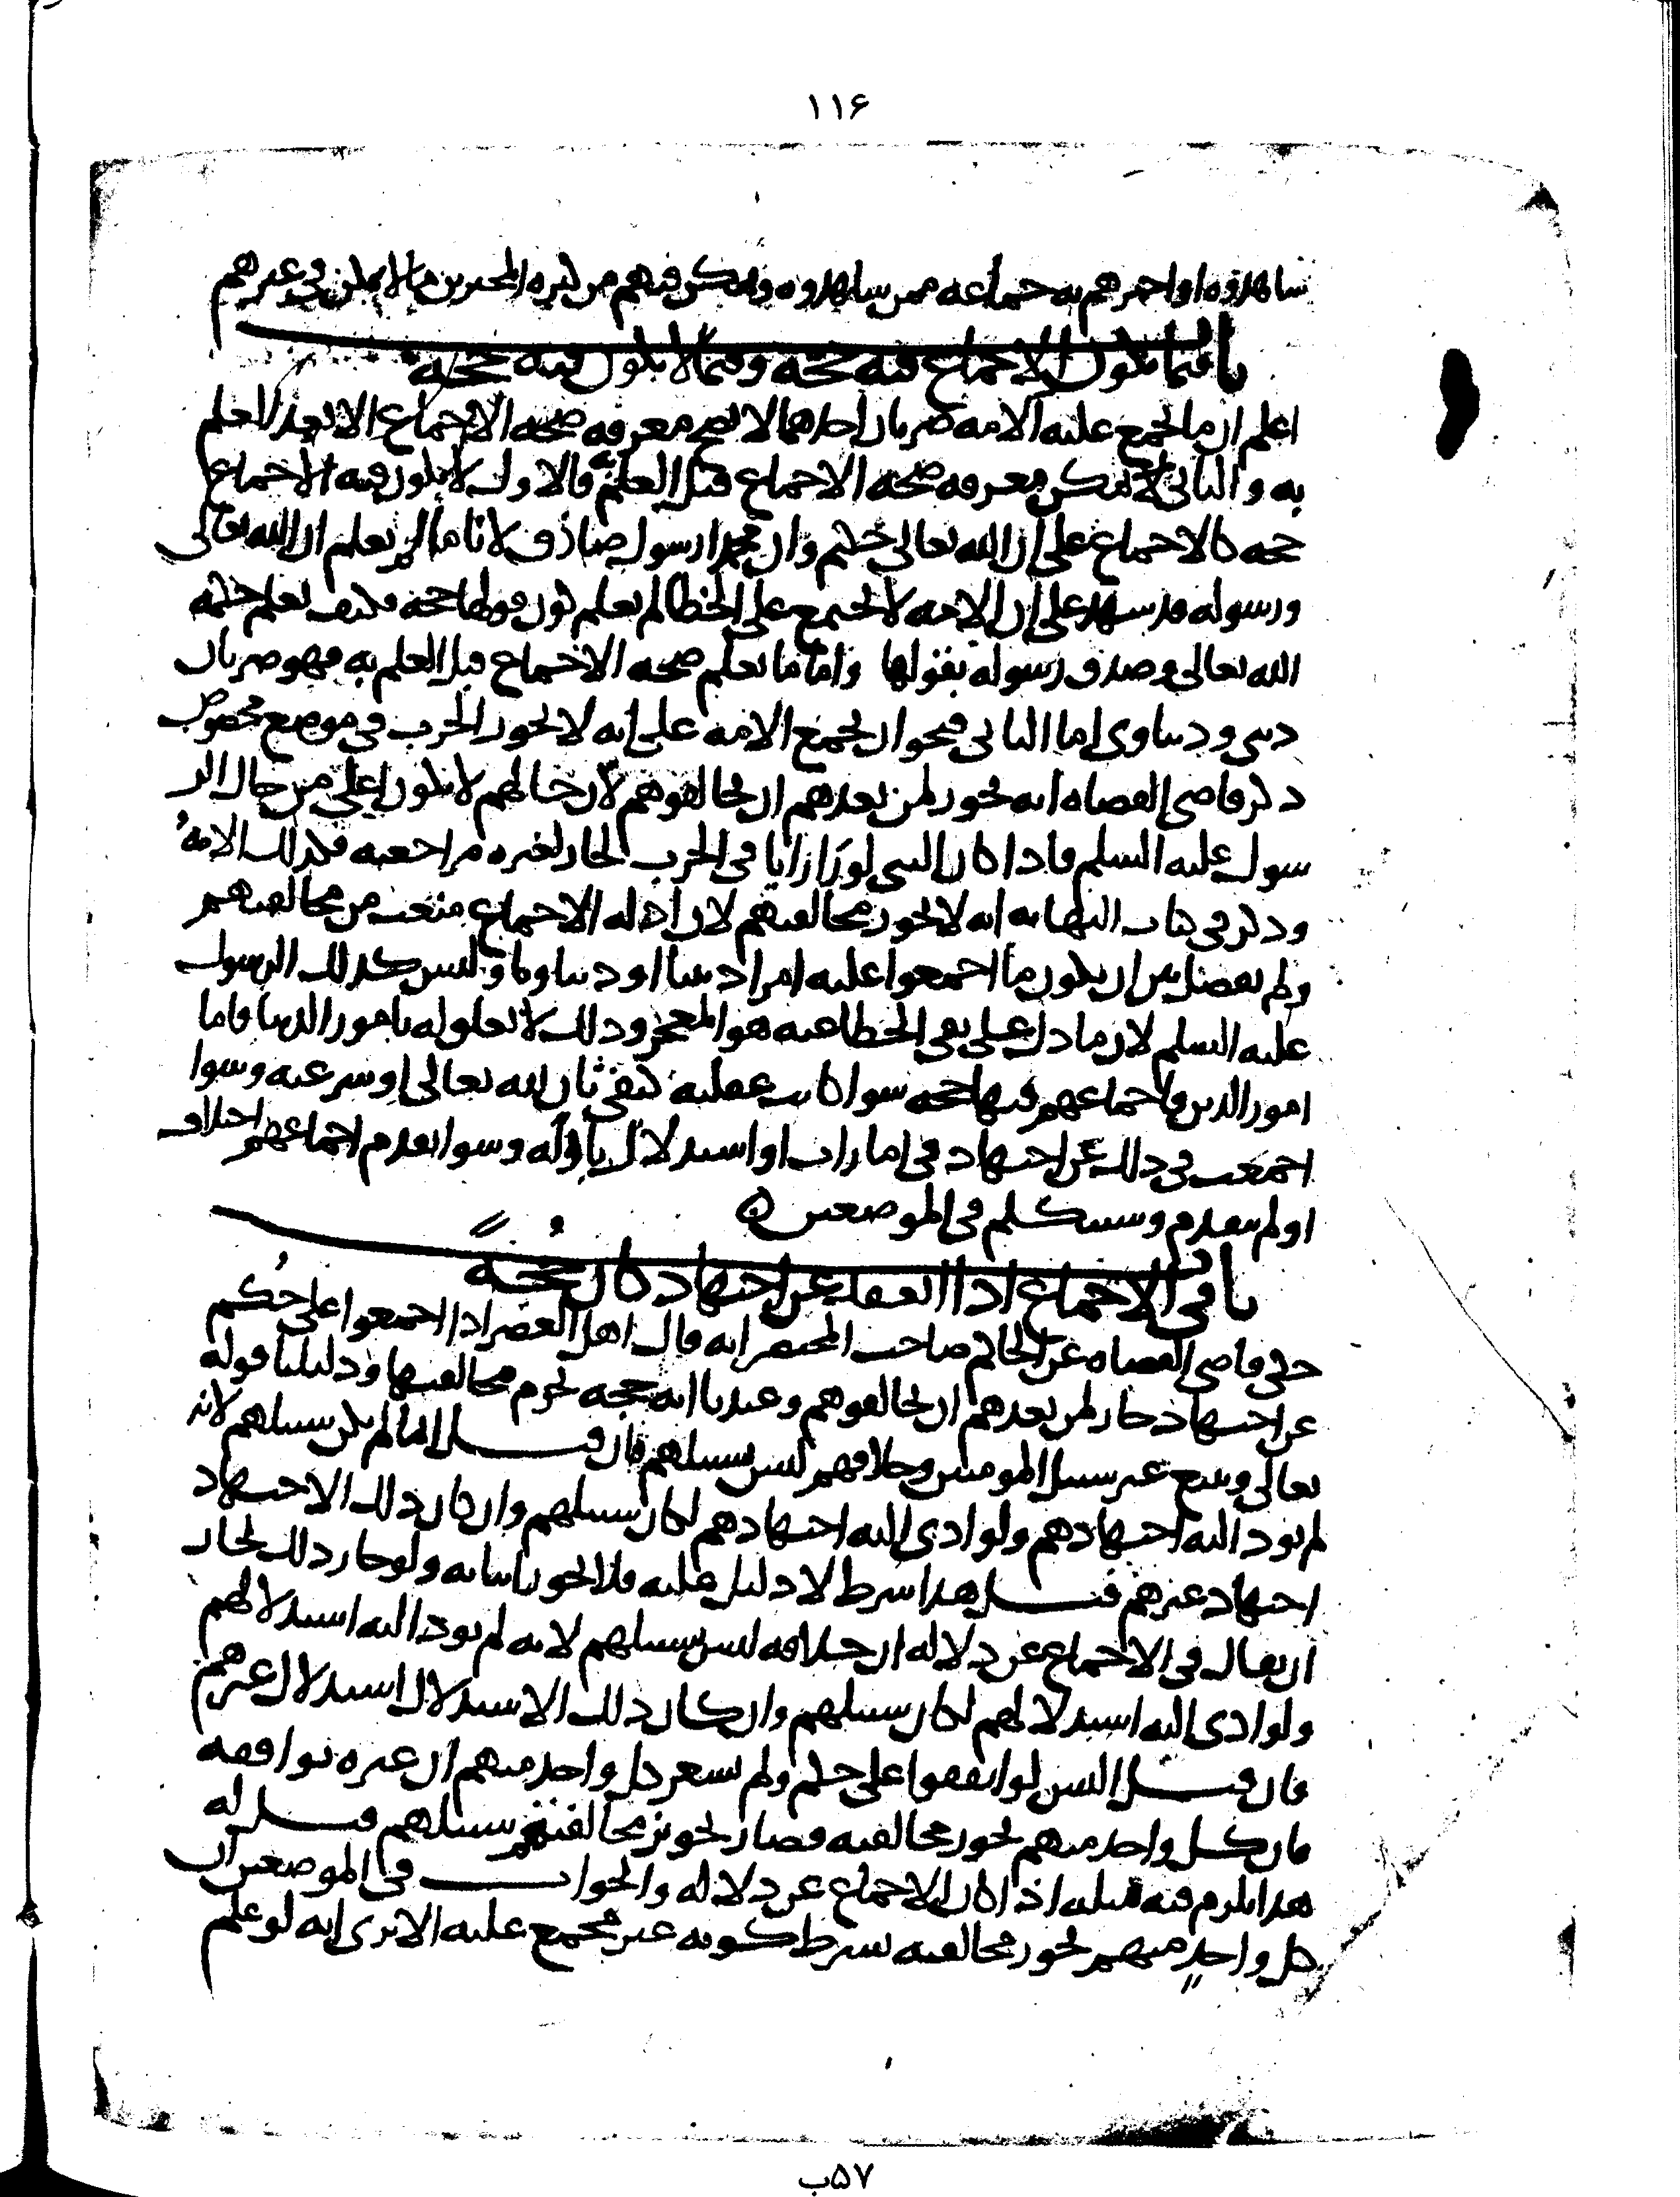 ١١۶
شاهدوه او اخبرهم به جماعه ممن شاهدوه ولم يكن فيهم من كثره المخبرين ما لا يمكن في غيرهم
باب فيما يكون الاجماع فيه حجه وفيما لا يكون فيه حجه
اعلم ان ما تجمع عليه الامه ضربان احدهما لا تصح معرفه صحه الاجماع الا بعد العلم
به والثاني يمكن معرفه صحه الاجماع قبل العلم به فالاول لا يكون فيه الاجماع
حجه كالاجماع على ان الله تعالى حكيم وان محمدا رسول صادق لانا ما لم نعلم ان الله تعالى
ورسوله قد شهد على ان الامه لا تجتمع على الخطا لم نعلم كون قولها حجه فكيف نعلم حكمه
الله تعالى وصدق رسوله بقولها واما ما نعلم صحه الاجماع قبل العلم به فهو ضربان
ديني ودنياوي اما الثاني فنحو ان تجمع الامه على انه لا يجوز الحرب في موضع مخصوص
ذكر قاضي القضاه انه يجوز لمن بعدهم ان يخالفوهم لان حالهم لا يكون اعلى من حال الر
سول عليه السلم فاذا كان النبي لو راى رايا في الحرب لجاز لغيره مراجعته فكذلك الامه
وذكر في كتاب النهايه انه لا يجوز مخالفتهم لان ادله الاجماع منعت من مخالفتهم
ولم يفصل بين ان يكون ما اجمعوا عليه امرا دينيا او دنياويا وليس كذلك الرسول
عليه السلم لان ما دل على نفي الخطا عنه هو المعجز وذلك لا تعلق له بامور الدنيا فاما
امور الدين فاجماعهم فيها حجه سوا كانت عقليه كنفي ثان لله تعالى او شرعيه وسوا
اجمعت في ذلك عن اجتهاد في امارات او استدلال بادله وسوا تقدم اجماعهم اختلاف
او لم يتقدم وسنتكلم في الموضعين ه
باب في الاجماع اذا انعقد عن اجتهاد كان حجه
حكى قاضي القضاه عن الحاكم صاحب المختصر انه قال اهل العصر اذا اجمعوا على حكم
عن اجتهاد جاز لمن بعدهم ان يخالفوهم وعندنا انه حجه تحرم مخالفتها ودليلنا قوله
تعالى ويتبع غير سبيل المومنين وخلافهم ليس سبيلهم فان قيل انما لم يكن سبيلهم لانه
لم يود اليه اجتهادهم ولو ادى اليه اجتهادهم لكان سبيلهم وان كان ذلك الاجتهاد
اجتهاد غيرهم قيل هذا شرط لا دليل عليه فلا يجوز اثباته ولو جاز ذلك لجاز
ان يقال في الاجماع عن دلاله ان خلافه ليس سبيلهم لانه لم يود اليه استدلالهم
ولو ادى اليه استدلالهم لكان سبيلهم وان كان ذلك الاستدلال استدلال غيرهم
فان قيل اليس لو اتفقوا على حكم ولم يشعر كل واحد منهم ان غيره يوافقه
فان كل واحد منهم يجوز مخالفته فصار تجويز مخالفتهم سبيلهم قيل له
هذا يلزم فيه مثله اذا كان الاجماع عن دلاله والجواب في الموضعين ان
كل واحد منهم يجوز مخالفته بشرط كونه غير مجمع عليه الا ترى انه لو علم
۵۷ب